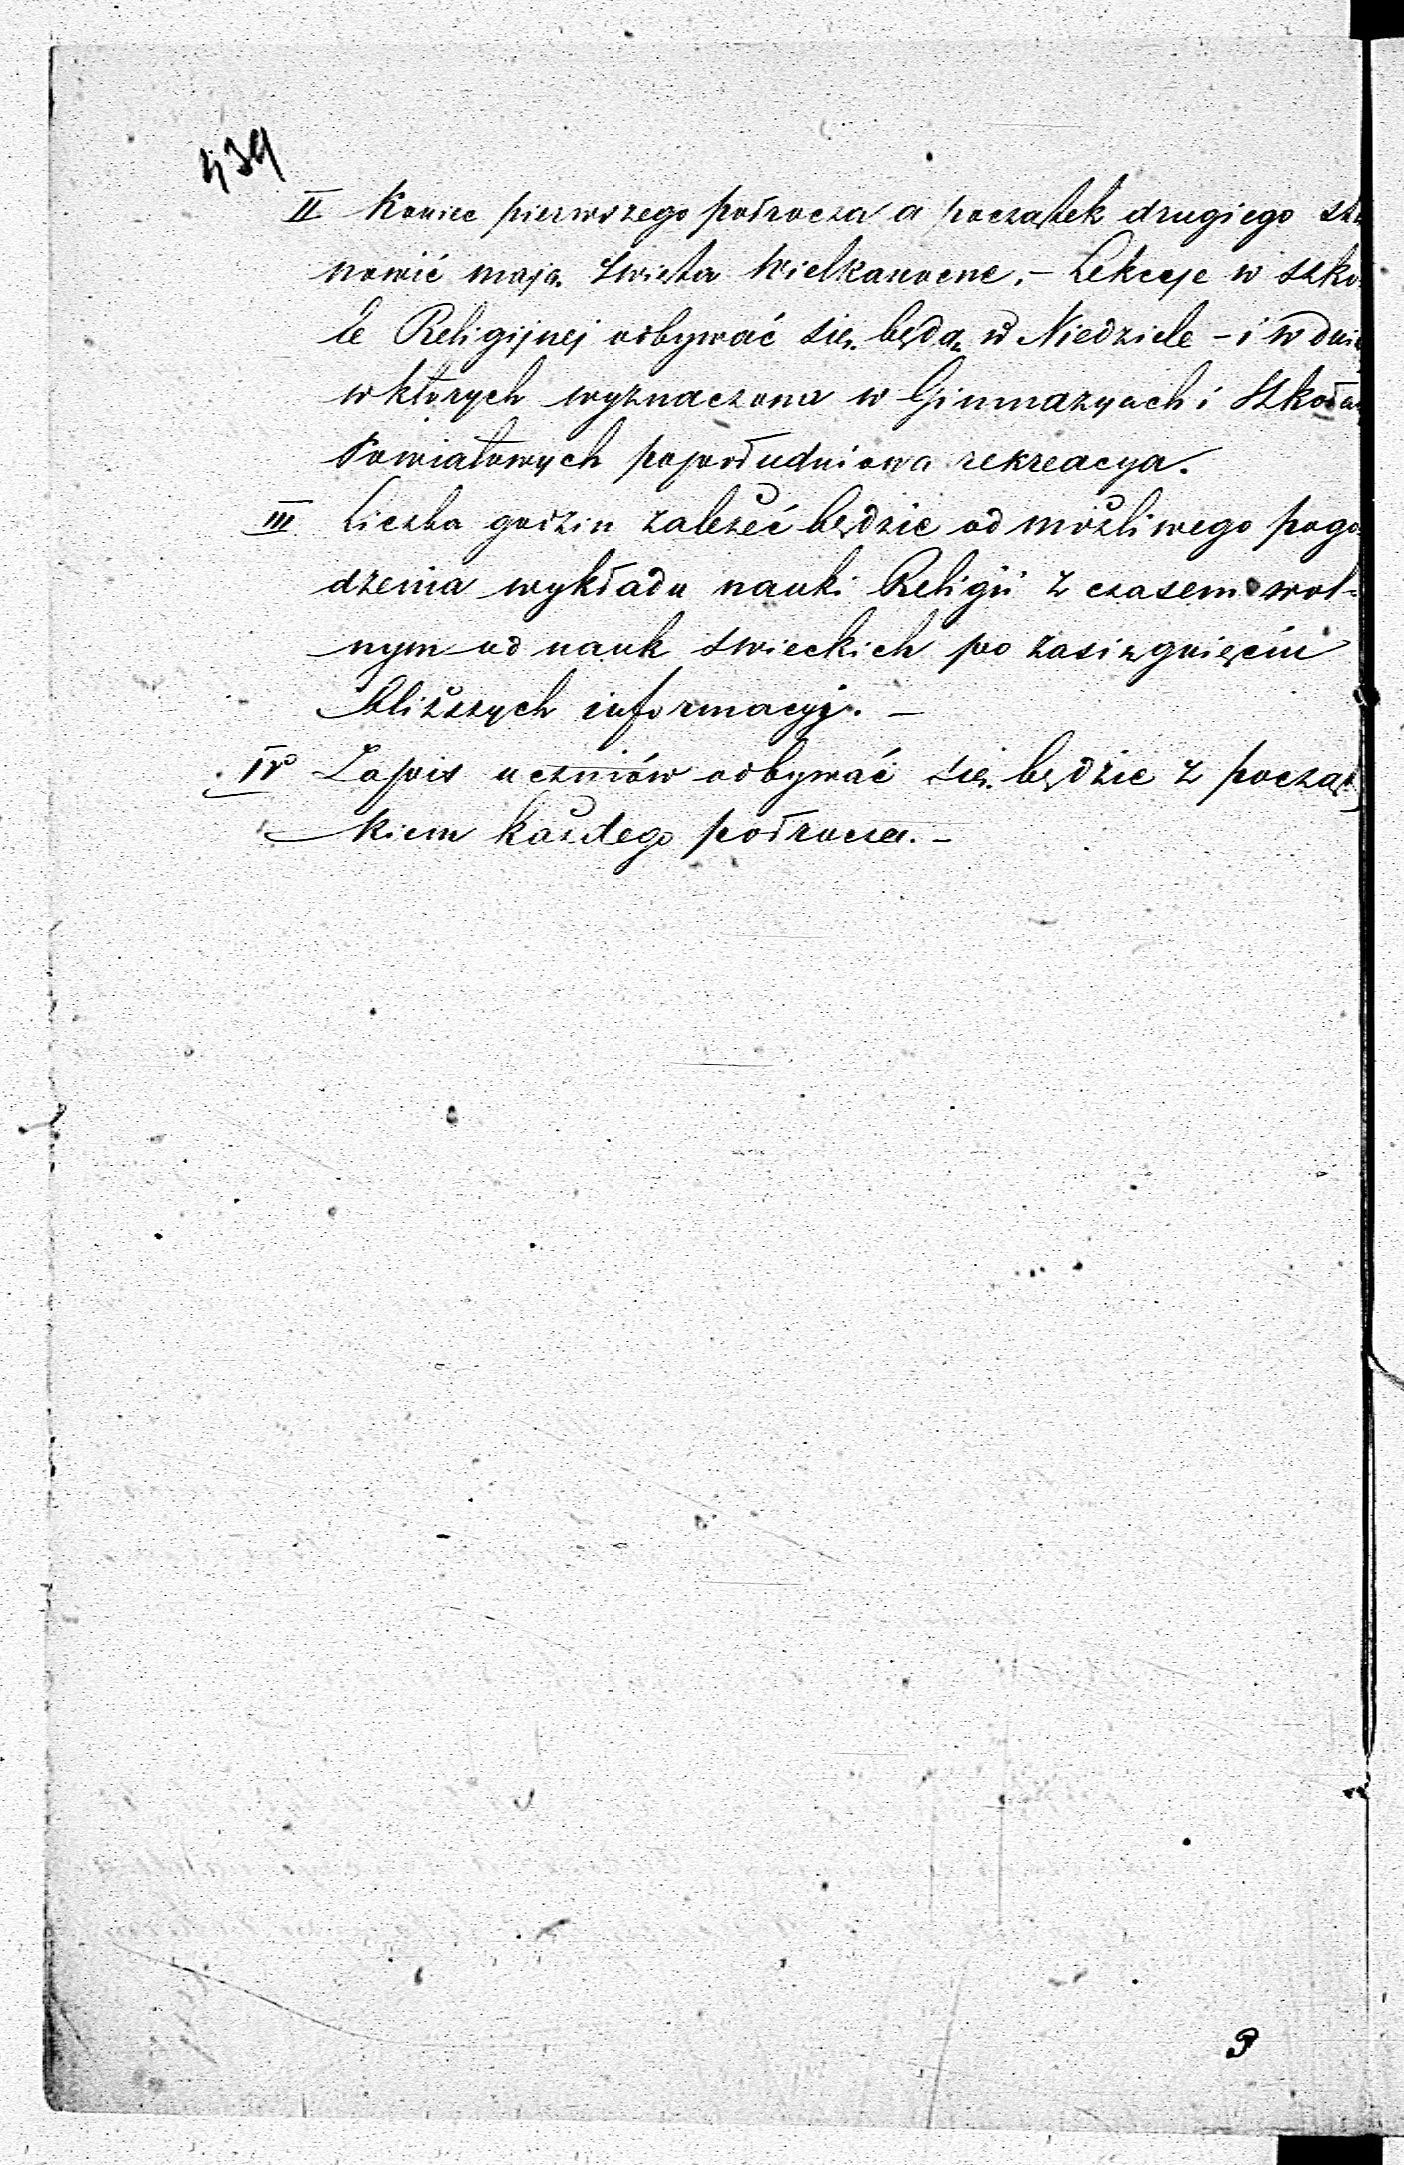 439
II Koniec pierwszego półrocza a początek drugiego sta
nowić mają Swieta Wielkanocne. – Lekcye w szko-
le Religijnej odbywać się będą w Niedziele – i w dnie
w których wyznaczona w Gimnazyach i Szkołac
Powiatowych popołudniowa rekreacya.
III Liczba godzin zależeć będzie od możliwego pogo-
dzenia wykładu nauki Religii z czasem wol-
nym od nauk swieckich po zasiągnięciu
bliższych informacyj. –
IV Zapis uczniów odbywać się będzie z począt
kiem każdego półrocza. –